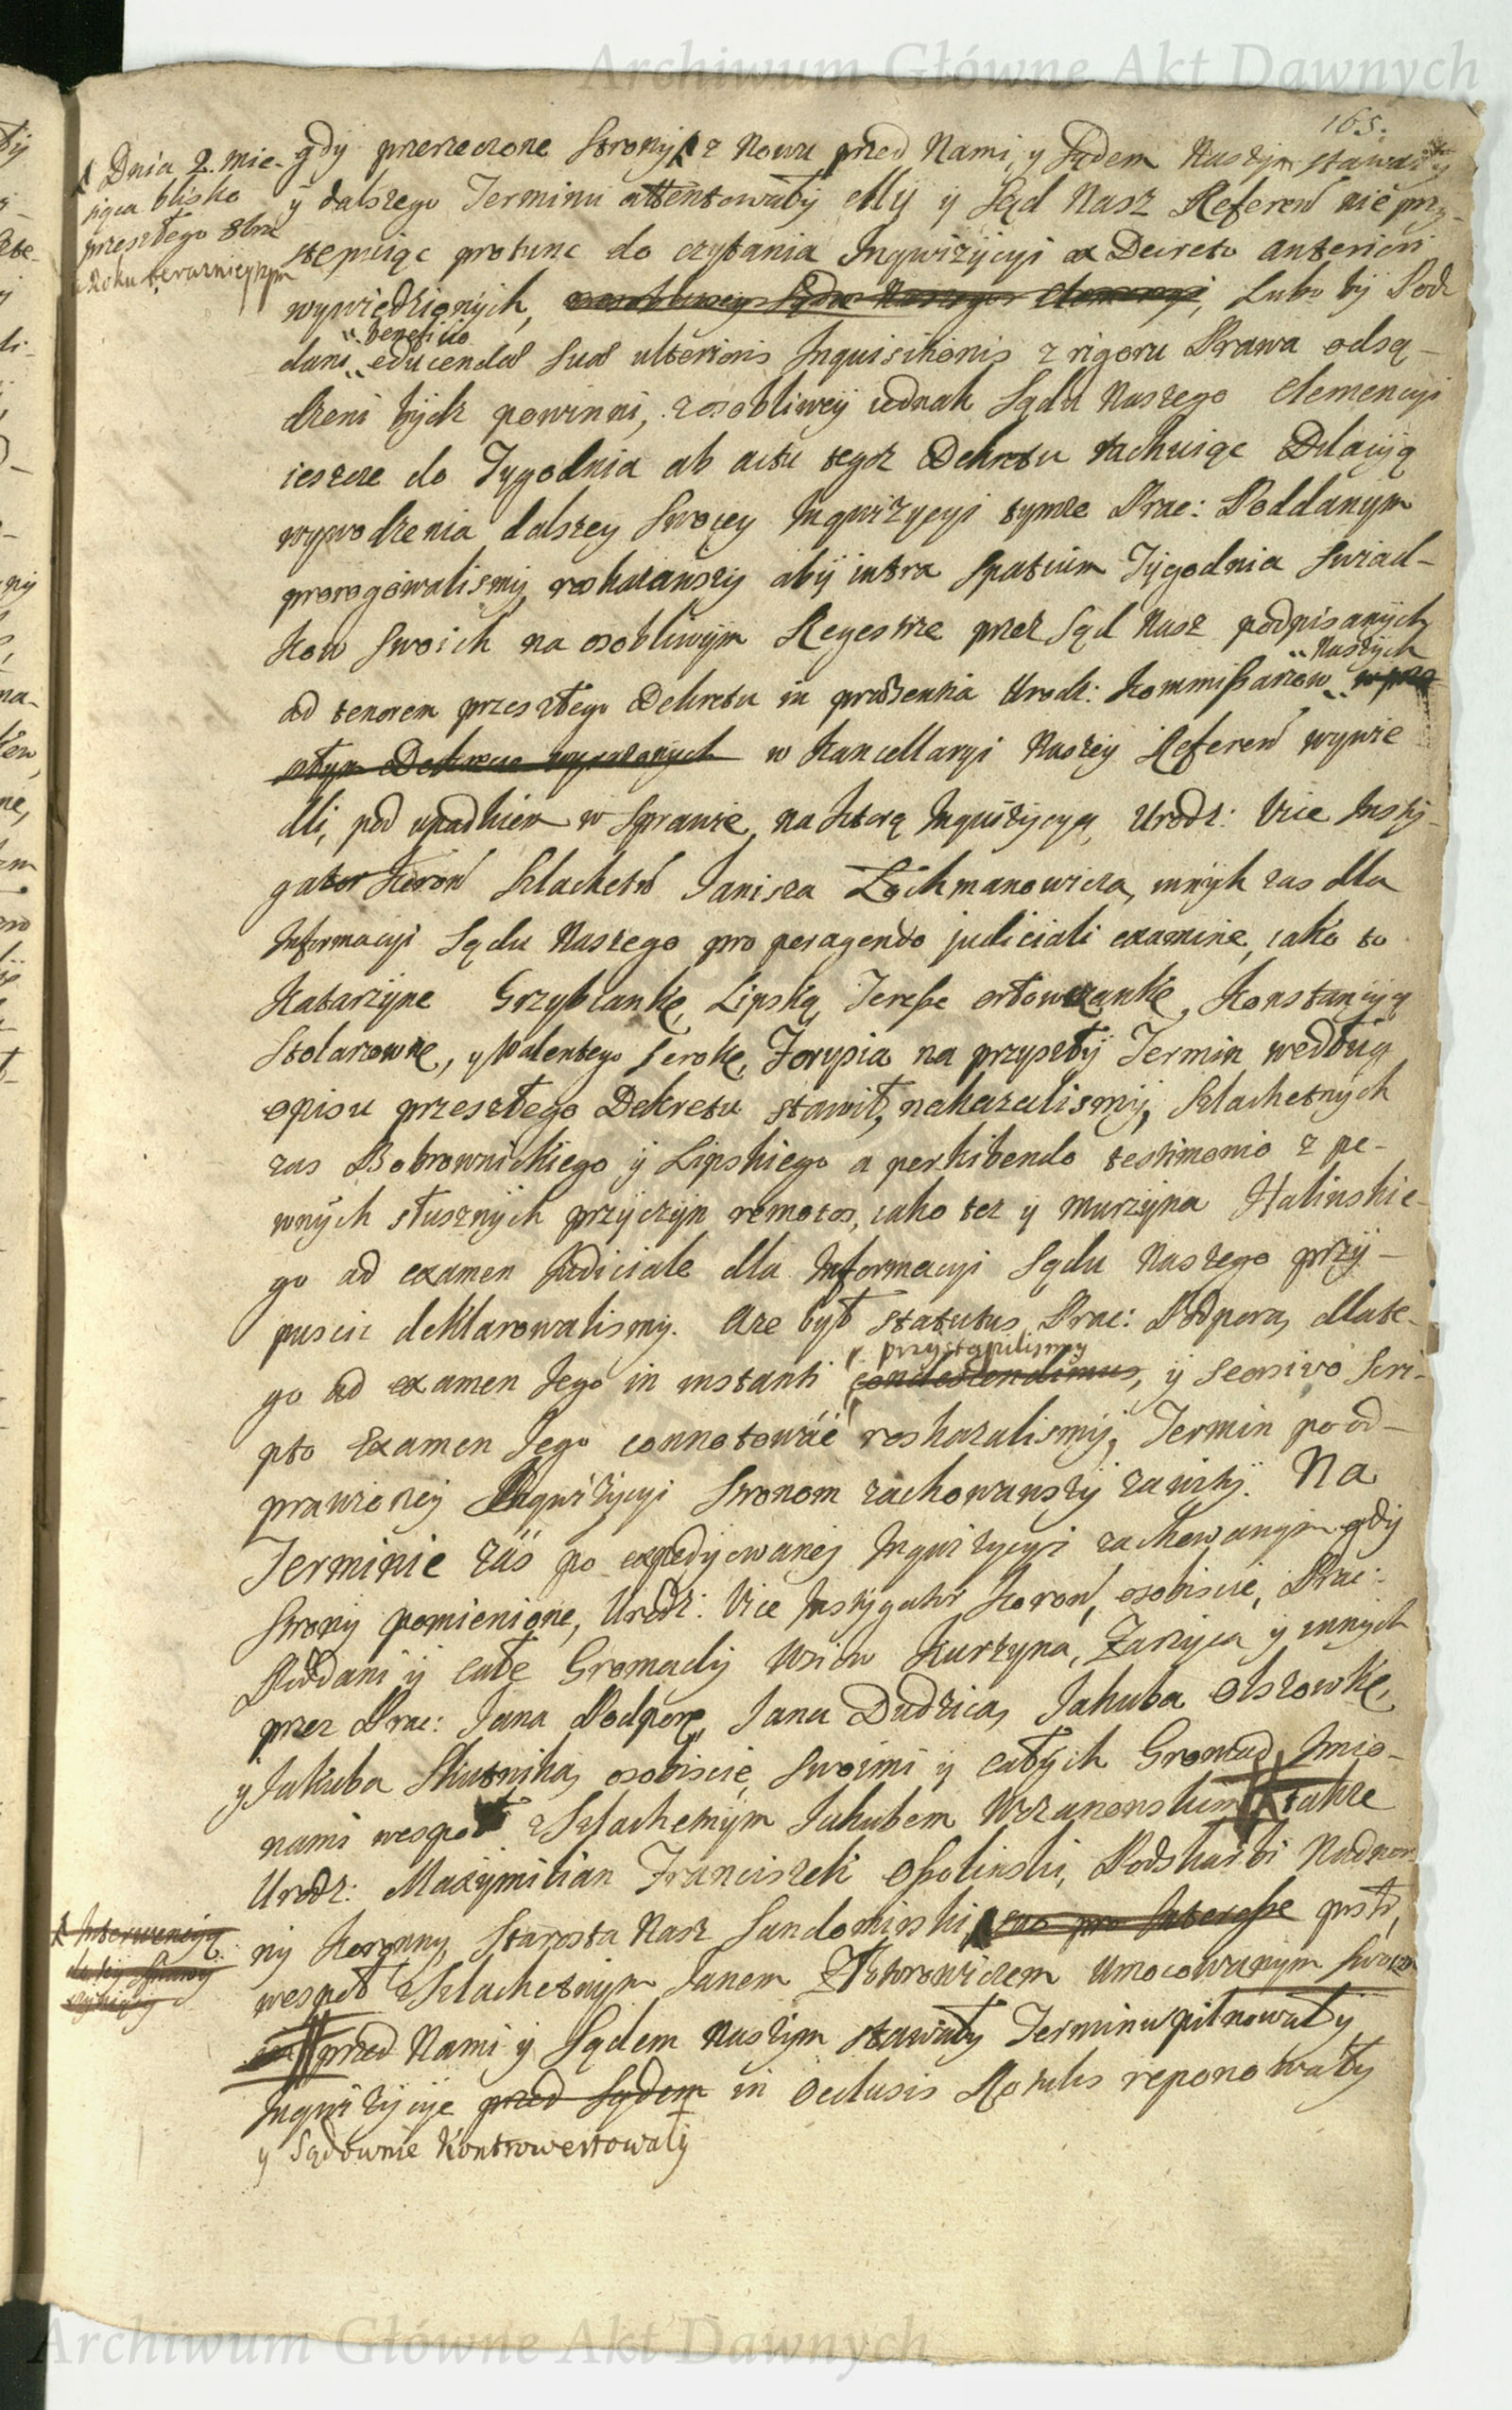 Archiwum Główne Akt Dawnych
165.
Dnia 2. Mie-
siąca blisko
przeszłego 8bra
Roku terazniejszym
gdy przerzeczone Strony z Nowu przed Nami, y Sądem Naszym stawały
y dalszego Terminu attentowały My y Sąd Nasz Referen nie przy-
stępuiąc protunc do czytania Inqwizycyi ex Decreto anteriori
wywiedzionych, osobliwey Sądu Naszego Clemencyi, Lubo by Pod
beneficio
dani educendæ suæ ulterioris Inquisitionis z rigoru Prawa odsą-
dzeni bydz powinni, z osobliwey iednak Sądu Naszego Clemencyi
ieszcze do Tygodnia ab actu tegoz Dekretu rachuiąc Dilacyą
wywodzenia dalszey Swoiey Inqwizycyi tymze Prac: Poddanym
prorogowalismy, roskazawszy aby intra Spatium Tygodnia Swiad-
kow Swoich na osobliwym Regestrze przez Sąd Nasz podpisanych
Naszych
ad tenorem przeszłego Dekretu in præsentia Urodz: Kommissarzow w prze
szłym Dekrecie wyrazonych w Kancellaryi Naszey Referen wywie
dli, pod upadkiem w Sprawie, na którą Inqwizycyą, Urodz: Vice Insty-
gator Koron Szlachetn Janisza Lochmanowicza, innych zas dla
Informacyi Sądu Naszego pro peragendo judiciali examine, iako to
Katarzynę Grzybiankę, Lipską, Teressę orłowczankę, Konstancyą
Stolarzownę, y Walentego Serokę, Torypia na przyszły Termin według
opisu przeszłego Dekretu stawił, nakazalismy, Szlachetnych
zas Bobrownickiego y Lipskiego a perhibendo testimonio z pe-
wnych słusznych przyczyn remotos, iako tez y murzyna Halinskie-
go ad examen Judiciale dla Informacyi Sądu Naszego przy-
puscic deklarowalismy. Aze był statutus Prac: Podpora, dlate-
przystąpilismy
go ad examen Jego in instanti condescendimus, y seorsivo scri-
pto Examen Jego connotowac roskazalismy, Termin po od-
prawioney Inqwizycyi Stronom zachowawszy zawity. Na
Terminie zas po expedyowaney Inqwizycyi zachowanym gdy
Strony pomienione, Urodz: Vice Instygator Koron, osobiscie, Prac:
Poddani y całe Gromady Wsiow Kurzyna, Zarzyca y innych
przez Prac: Jana Podporę, Jana Dudzica, Jakuba Olszowkę,
y Jakuba Skutnika, osobiscie, Swoimi y całych Gromad Jmio-
nami wespoł z Szlachetnym Jakubem Wrzanowskim takze
Urodz: Maxymilian Franciszek Ossolinski, Podskarbi Nadwor-
ny Koronny, Starosta Nasz Sandomirski, suo pro Interesse
wespoł z Szlachetnym Janem Złotorowiczem Umocowanym Swoim
przed Nami y Sądem Naszym stawały Terminu pilnowały
Inqwizycyie przed Sądem in Oclusis Rotulis reponowały
y Sądownie Kontrowertowały
Interwencyą
do tey Sprawy
czyniący
Archiwum Główne Akt Dawnych